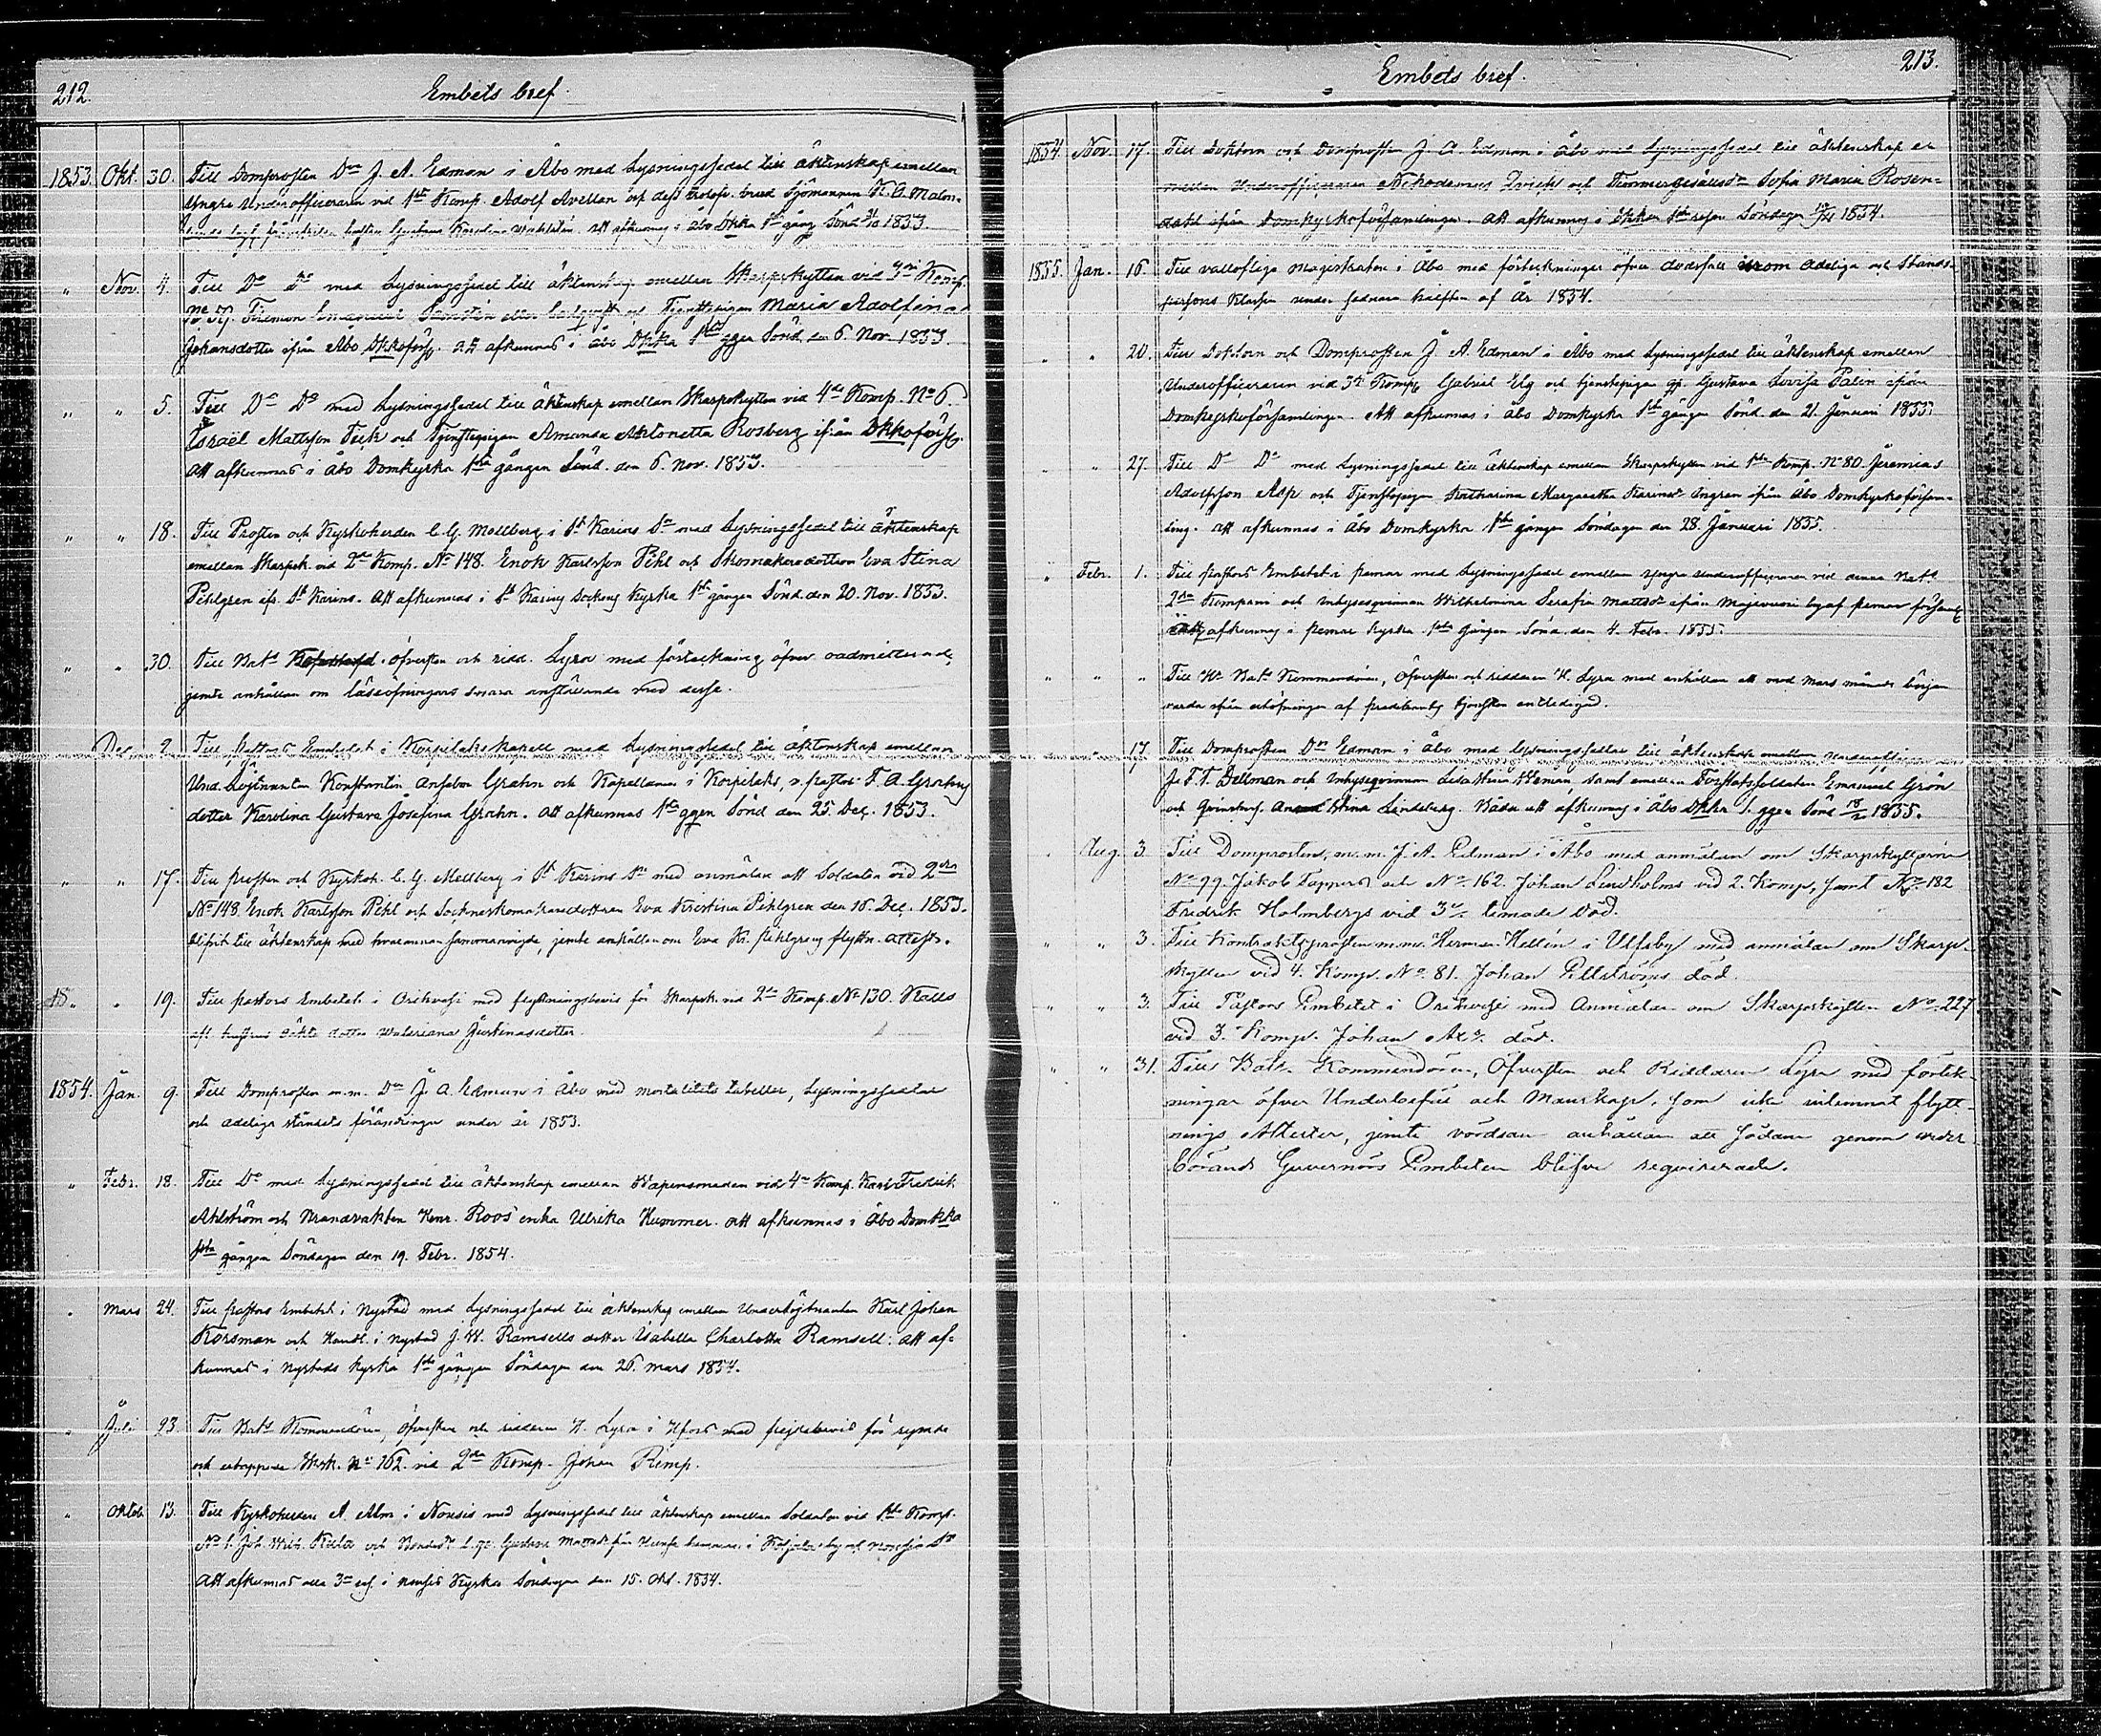 212.
Embets bref.
1853. Okt. 30. Till Domprosten Dn J. A. Edman i Åbo med Lysningssedel till äktenskap emellan
yngre Underofficeraren vid 1sta Komp. Adolf Avellan och dess trolofv. brud Sjömannen K. A. Malm-
Gustava Karolina att afkunnas i Åbo Dkka 1sta gång Sönd 30/10 1853.
„ Nov. 4. Till Do Do med Lysningssedel till äktenskap emellan Skarpskytten vid 3dje Komp.
No 57. Fileman Emanuel och Tjenstepigan Maria Adolfina
Johansdotter ifrån Åbo Dkkoförs. att afkunnas i Åbo Dkka 1sta ggen Sönd. den 6. Nov. 1853.
„ „ 5. Till Do Do med Lysningssedel till äktenskap emellan Skarpskytten vid 4de Komp. No 6.
Israël Mattsson Tick och Tjenstepigan Amanda Antonetta Rosberg ifrån Dkkoförs.
Att afkunnas i Åbo Domkyrka 1sta gången Sönd. den 6. Nov. 1853.
„ „ 18. Till Prosten och Kyrkoherden C. G. Mellberg i St Karins Sn med Lysningssedel till äktenskap
emellan Skarpsk. vid 2dra Komp. No 148. Enok Karlsson Pihl och Skomakaredottren Eva Stina
Pihlgren ifr. St Karins. Att afkunnas i St Karins Sockens Kyrka 1sta gången Sönd. den 20. Nov. 1853.
„ „ 30. Till Bats Öfversten och ridd. Lyra med förteckning öfver oadmitterade,
jemte anhållan om läseöfningars snara anställande med desse.
Dec. 2. Till Pastors Embetet i Korpilaks kapell med Lysningssedel till äktenskap emellan
Und. Löjtnanten Konstantin Anselm Grahn och Kapellanen i Korpilaks, v. pastor F. A. Grahns
dotter Karolina Gustava Josefina Grahn. Att afkunnas 1sta ggen Sönd den 25. Dec. 1853.
„ „ 17. Till prosten och Kyrkoh. C. G. Mellberg i St Karins Sn med anmälan att Soldaten vid 2dra
No 148. Enok Karlsson Pihl och Sockneskomakaredottren Eva Kristina Pihlgren den 16. Dec. 1853.
blifvit till äktenskap med hvarannan sammanvigde, jemte anhållan om Eva Kr. Pihlgrens flyttn. attest.
„ 19. Till pastors Embetet i Orihvesi med flyttningsbevis för Skarpsk. vid 2dra Komp. No 130. Kalls
oäkta dotter Valeriana Justinasdotter.
1854. Jan. 9. Till Domprosten m.m. Dn J. A. Edman i Åbo med mortalitets tabeller, Lysningssedlar
och adeliga ståndets förändringar under år 1853.
„ Febr. 18. Till Do med Lysningssedel till äktenskap emellan Vapensmeden vid 4de Komp. Karl Fredrik
Ahlström och Brandvakten Henr. Roos' enka Ulrika Hummer. att afkunnas i Åbo Domkka
1sta gången Söndagen den 19. Febr. 1854.
„ Mars 24. Till pastors Embetet i Nystad med Lysningssedel till äktenskap emellan Underlöjtnanten Karl Johan
Korsman och Handl. i Nystad J. W. Ramsells dotter Isabella Charlotta Ramsell: att af-
kunnas i Nystads kyrka 1sta gången Söndagen den 26. Mars 1854.
„ Juli 23. Till Bats Kommendören, Öfversten och riddaren H. Lyra i Hfors med frejdebevis för rymde
och ertappade Sksk. No 162 vid 2dra Komp. Johan Rimp.
„ Oktob. 13. Till Kyrkoherden A. Alm i Nousis med Lysningssedel till äktenskap emellan Soldaten vid 1sta Komp.
No 1. Joh. Wilh. och Gustava Mattsdr från hemman i by af Nousis Sn
Att afkunnas alla 3ne i Nousis Kyrka Söndagen den 15. Okt. 1854.
Embets bref.
213.
1854. Nov. 17. Till Doktorn och Domprosten J. A. Edman i Åbo med Lysningssedel till äktenskap e-
mellan Underofficeraren Nikodemus och Timmergesällsdr Sofia Maria Rosen-
dahl ifrån Domkyrkoförsamlingen. Att afkunnas i Dkkan 1sta resan Söndagen 19/11 1854.
1855. Jan. 16. Till vallofliga Magistraten i Åbo med förteckningar öfver dödsfall inom Adeliga och Stånds-
persons Klassen under sednare hälften af År 1854.
„ „ 20. Till Doktorn och Domprosten J. A. Edman i Åbo med Lysningssedel till äktenskap emellan
Underofficeraren vid 3dje Komp. Gabriel Elg och tjenstepigan Gustava Lovisa Palin ifrån
Domkyrkoförsamlingen. Att afkunnas i Åbo Domkyrka 1sta gången Sönd. den 21. Januari 1855.
„ „ 27. Till Do Do med Lysningssedel till äktenskap emellan Skarpskytten vid 1sta Komp. No 80. Jeremias
Adolfsson Alp och Tjenstepigan Katharina Margaretha Karinsdr Ingren ifrån Åbo Domkyrkoförsam-
ling. Att afkunnas i Åbo Domkyrka 1sta gången Söndagen den 28. Januari 1855.
„ Febr. 1. Till Pastors Embetet i Pemar med Lysningssedel emellan Yngre Underofficeraren vid denna Bats
2dra Kompani och Inhysesqvinnan Wilhelmina Serafia Mattsdr ifrån by af Pemar församl.
Att afkunnas i Pemar Kyrka 1sta gången Sönd. den 4. Febr. 1855.
„ „ „ Till Hr Bats Kommendören, Öfversten och riddaren H. Lyra med anhållan att med Mars månads början
varda ifrån utöfningen af predikantstjensten entledigad.
„ 17. Till Domprosten Dn Edman i Åbo med lysningssedlar till äktenskap emellan Underoffic.
J. F. T. Dellman och Inhysesqvinnan Lisa Stina Åkeman, samt emellan Soldaten Emanuel Grön
och Anna Stina Lindeberg. Båda att afkunnas i Åbo Dkka 1. ggen Sönd 18/2 1855.
„ Aug. 3. Till Domprosten, m. m. J. A. Edman i Åbo med anmälan om Skarpskyttarne
No 99. Jakob Tappers och No 162. Johan Lindholms vid 2. Komp, samt No 182
Fredrik Holmbergs vid 3dje timade död.
„ „ 3. Till Kontraktsprosten m.m. Herman Hellén i Ulfsby med anmälan om Skarp-
skytten vid 4. Komp. No. 81. Johan Ellströms död.
„ „ 3. Till Pastors Embetet i Orihvesi med Anmälan om Skarpskytten No. 227
vid 3. Komp. Johan Ax's död.
„ „ 31. Till Bats. Kommendören, Öfversten och Riddaren Lyra med förtek-
ningar öfver Underbefäl och Manskap, som icke inlemnat flytt-
nings Attester, jemte vördsam anhållan att sådane genom veder-
börande Guvernörs Embeten blifva reqvirerade.